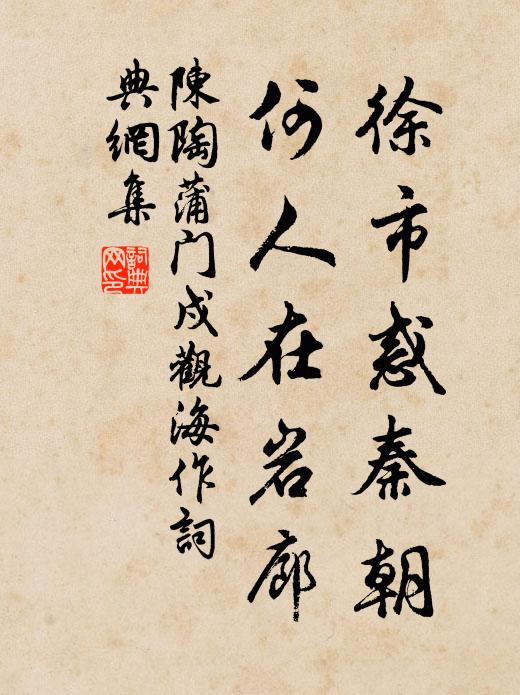 徐市惑秦朝
何人在岩廊
陳陶蒲门戍觀海作詞
典網集
詞典
网印